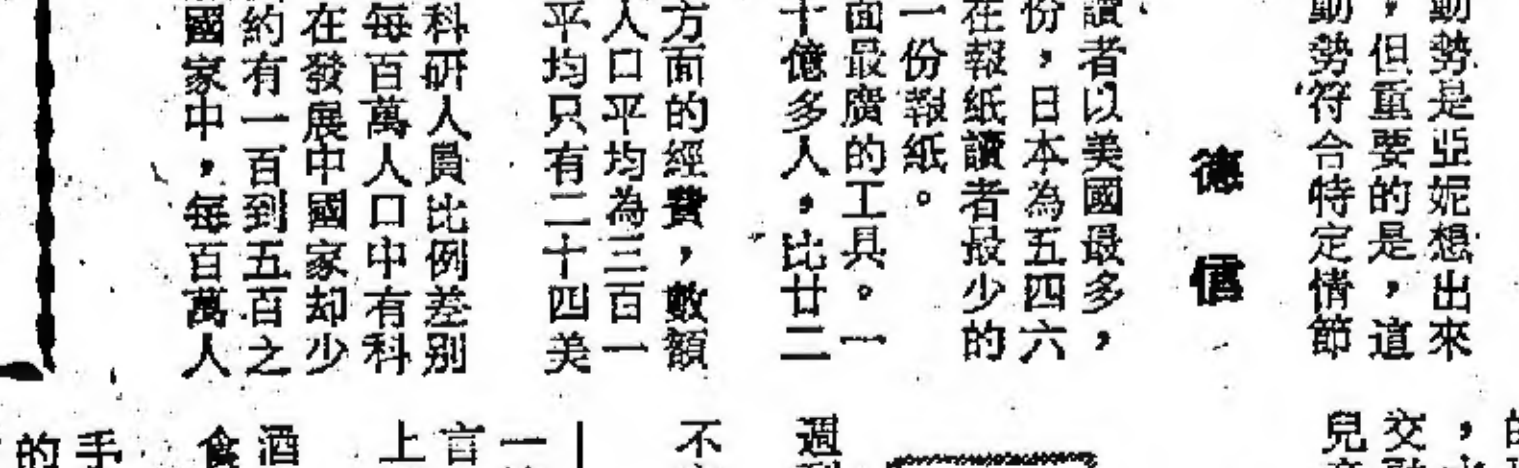 勢是亞妮想出來
，但重要的是，這
動勢符合特定情節
德信
讀者以美國最多，
份，日本為五四六
在報紙讀者最少的
一份報紙。
面最廣的工具。一
十億多人，比廿二
方面的經費，數額
人口平均為三百一
平均只有二十四美
科研人員比例差別
每百萬人口中有科
在發展中國家却少
約有一百到五百之
國家中，每百萬人
交
兒
週
不
一
言
上
酒
食
手
的